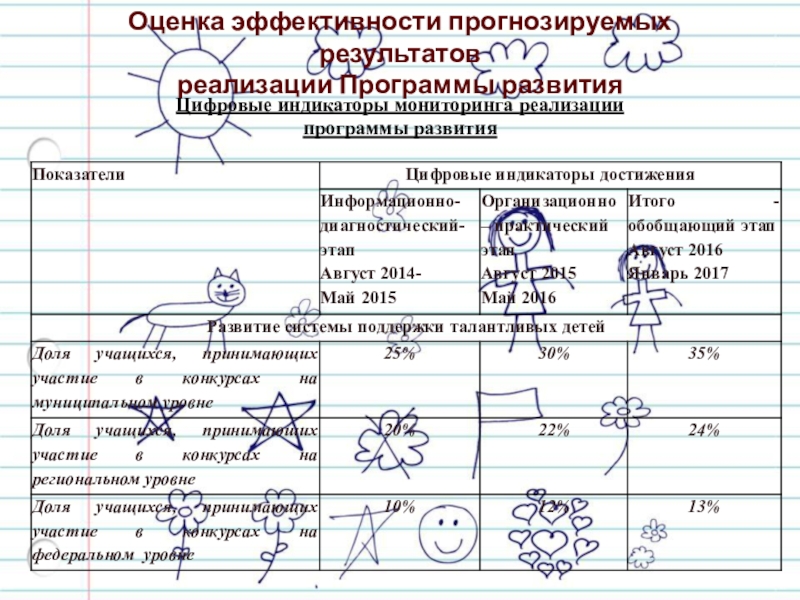 Оценка эффективности прогнозируемых
результатов
реализации Программы развития
Цифровые индикаторы мониторинга реализации
программы развития
Показатели
Цифровые индикаторы достижения
Информационно-
диагностический-
этап
Август 2014-
Май 2015
Организационно
– практический
этап
Август 2015
Май 2016
Итого -
обобщающий этап
Август 2016
Январь 2017
Развитие системы поддержки талантливых детей
Доля учащихся, принимающих
участие в конкурсах на
муниципальном уровне
25%
30%
35%
Доля учащихся, принимающих
участие в конкурсах на
региональном уровне
20%
22%
24%
Доля учащихся, принимающих
участие в конкурсах на
федеральном уровне
10%
12%
13%